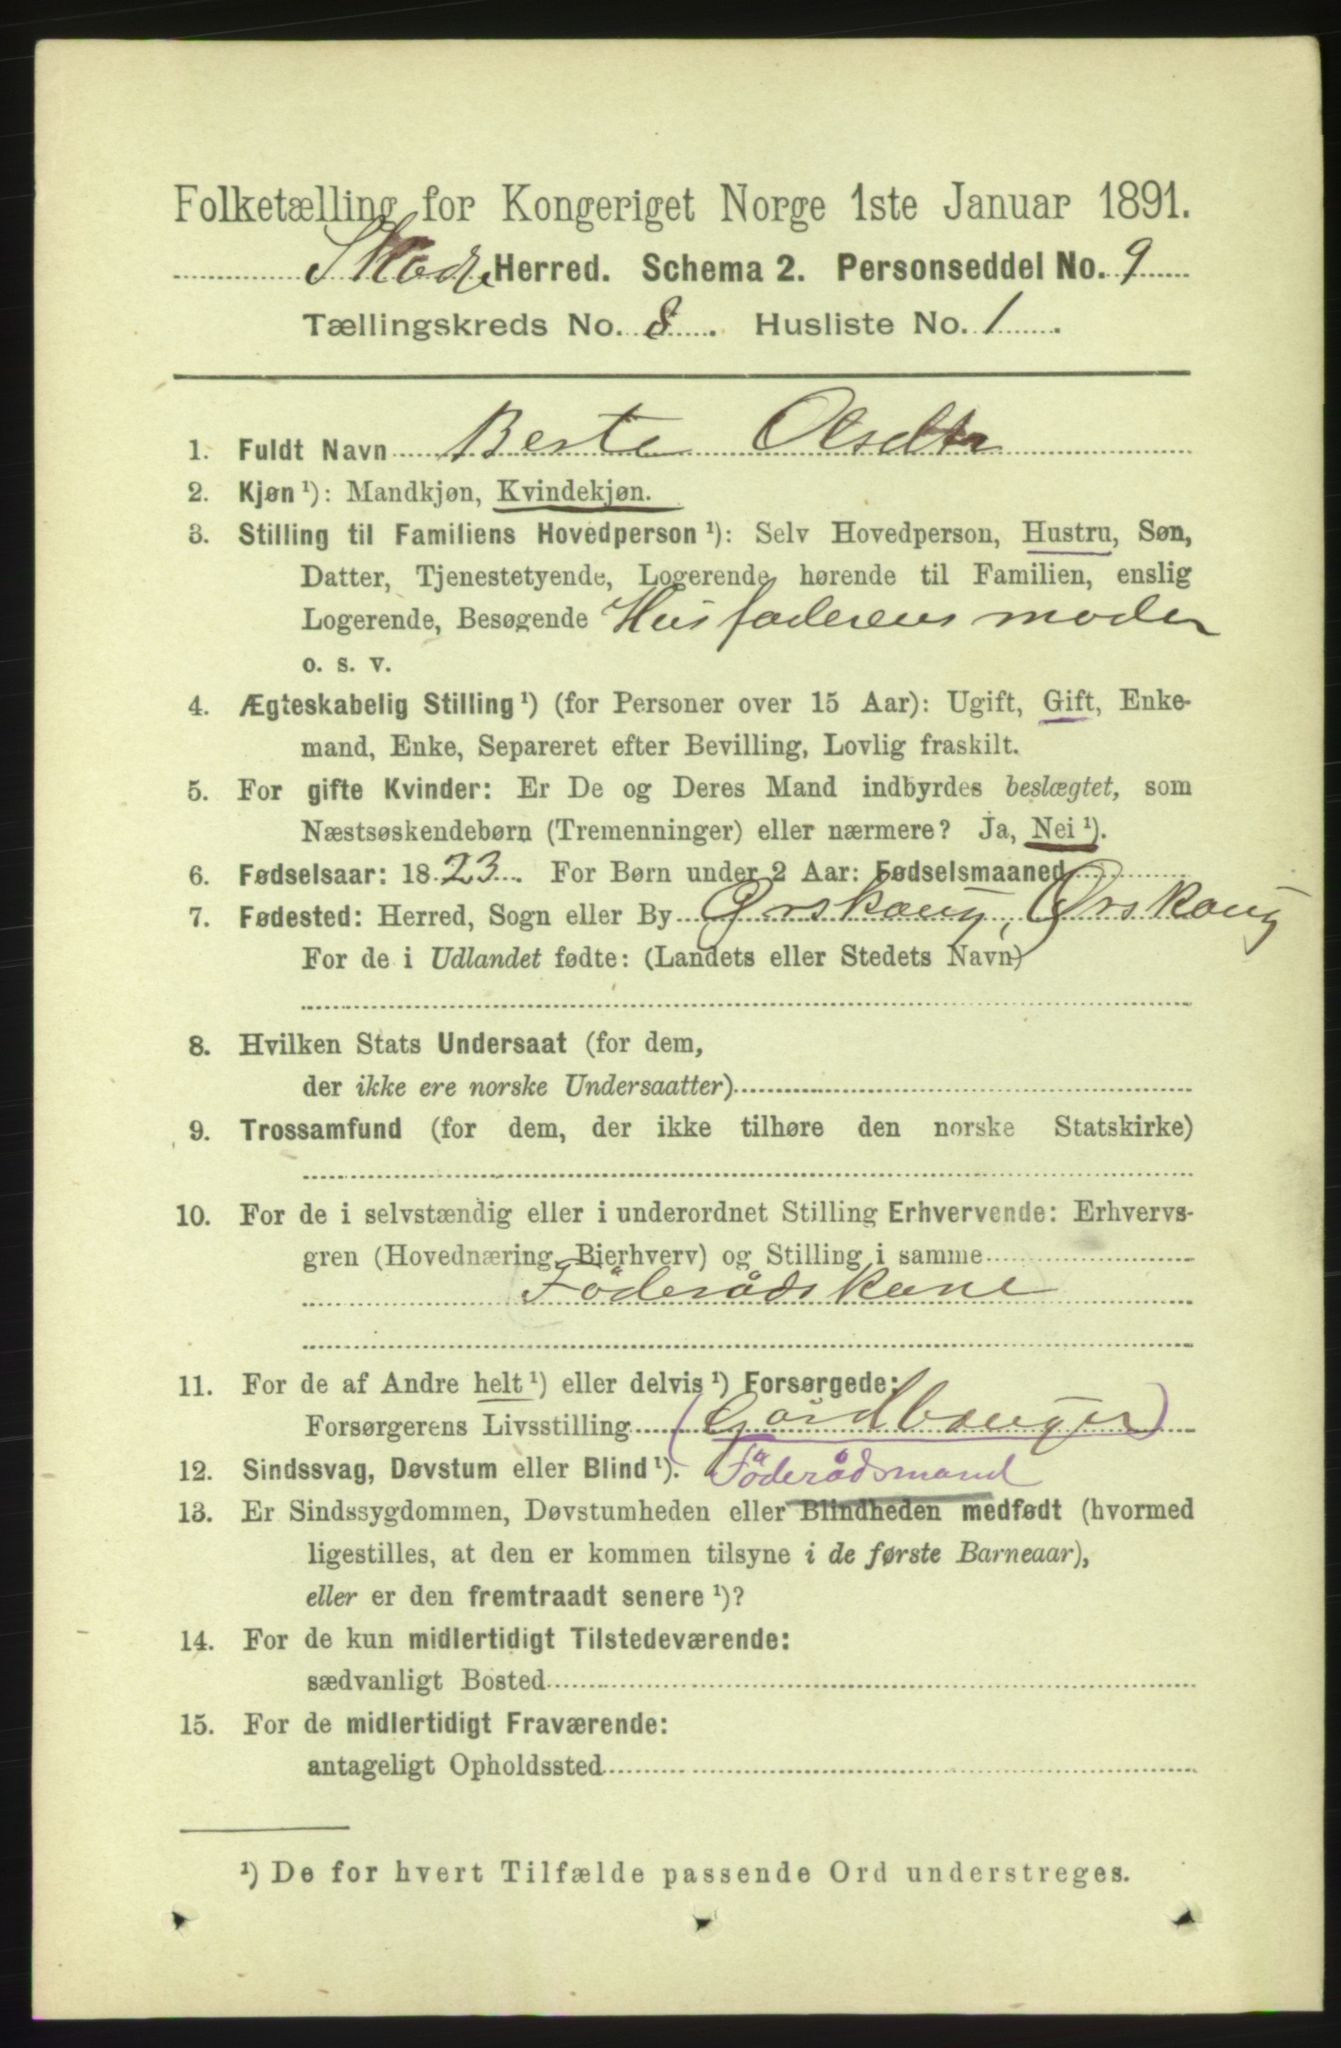 Folketælling for Kongeriget Norge 1ste Januar 1891.
Skodje Herred. Schema 2. Personseddel No. 9
Tællingskreds No. 8. Husliste No. 1.
1. Fuldt Navn Berte Olsdtr
2. Kjøn ¹): Mandkjøn, Kvindekjøn.
3. Stilling til Familiens Hovedperson ¹): Selv Hovedperson, Hustru, Søn,
Datter, Tjenestetyende, Logerende hørende til Familien, enslig
Logerende, Besøgende Husfaderens moder
o. s. v.
4. Ægteskabelig Stilling ¹) (for Personer over 15 Aar): Ugift, Gift, Enke-
mand, Enke, Separeret efter Bevilling, Lovlig fraskilt.
5. For gifte Kvinder: Er De og Deres Mand indbyrdes beslægtet, som
Næstsøskendebørn (Tremenninger) eller nærmere? Ja, Nei ¹).
6. Fødselsaar: 1823. For Børn under 2 Aar: Fødselsmaaned
7. Fødested: Herred, Sogn eller By Ørskoug, Ørskoug
For de i Udlandet fødte: (Landets eller Stedets Navn)
8. Hvilken Stats Undersaat (for dem,
der ikke ere norske Undersaatter)
9. Trossamfund (for dem, der ikke tilhøre den norske Statskirke)
10. For de i selvstændig eller i underordnet Stilling Erhvervende: Erhvervs-
gren (Hovednæring, Bierhverv) og Stilling i samme
Föderådskone
11. For de af Andre helt ¹) eller delvis ¹) Forsørgede:
Forsørgerens Livsstilling (Gårdbruger)
12. Sindssvag, Døvstum eller Blind ¹). Föderådsmand
13. Er Sindssygdommen, Døvstumheden eller Blindheden medfødt (hvormed
ligestilles, at den er kommen tilsyne i de første Barneaar),
eller er den fremtraadt senere ¹)?
14. For de kun midlertidigt Tilstedeværende:
sædvanligt Bosted
15. For de midlertidigt Fraværende:
antageligt Opholdssted
¹) De for hvert Tilfælde passende Ord understreges.